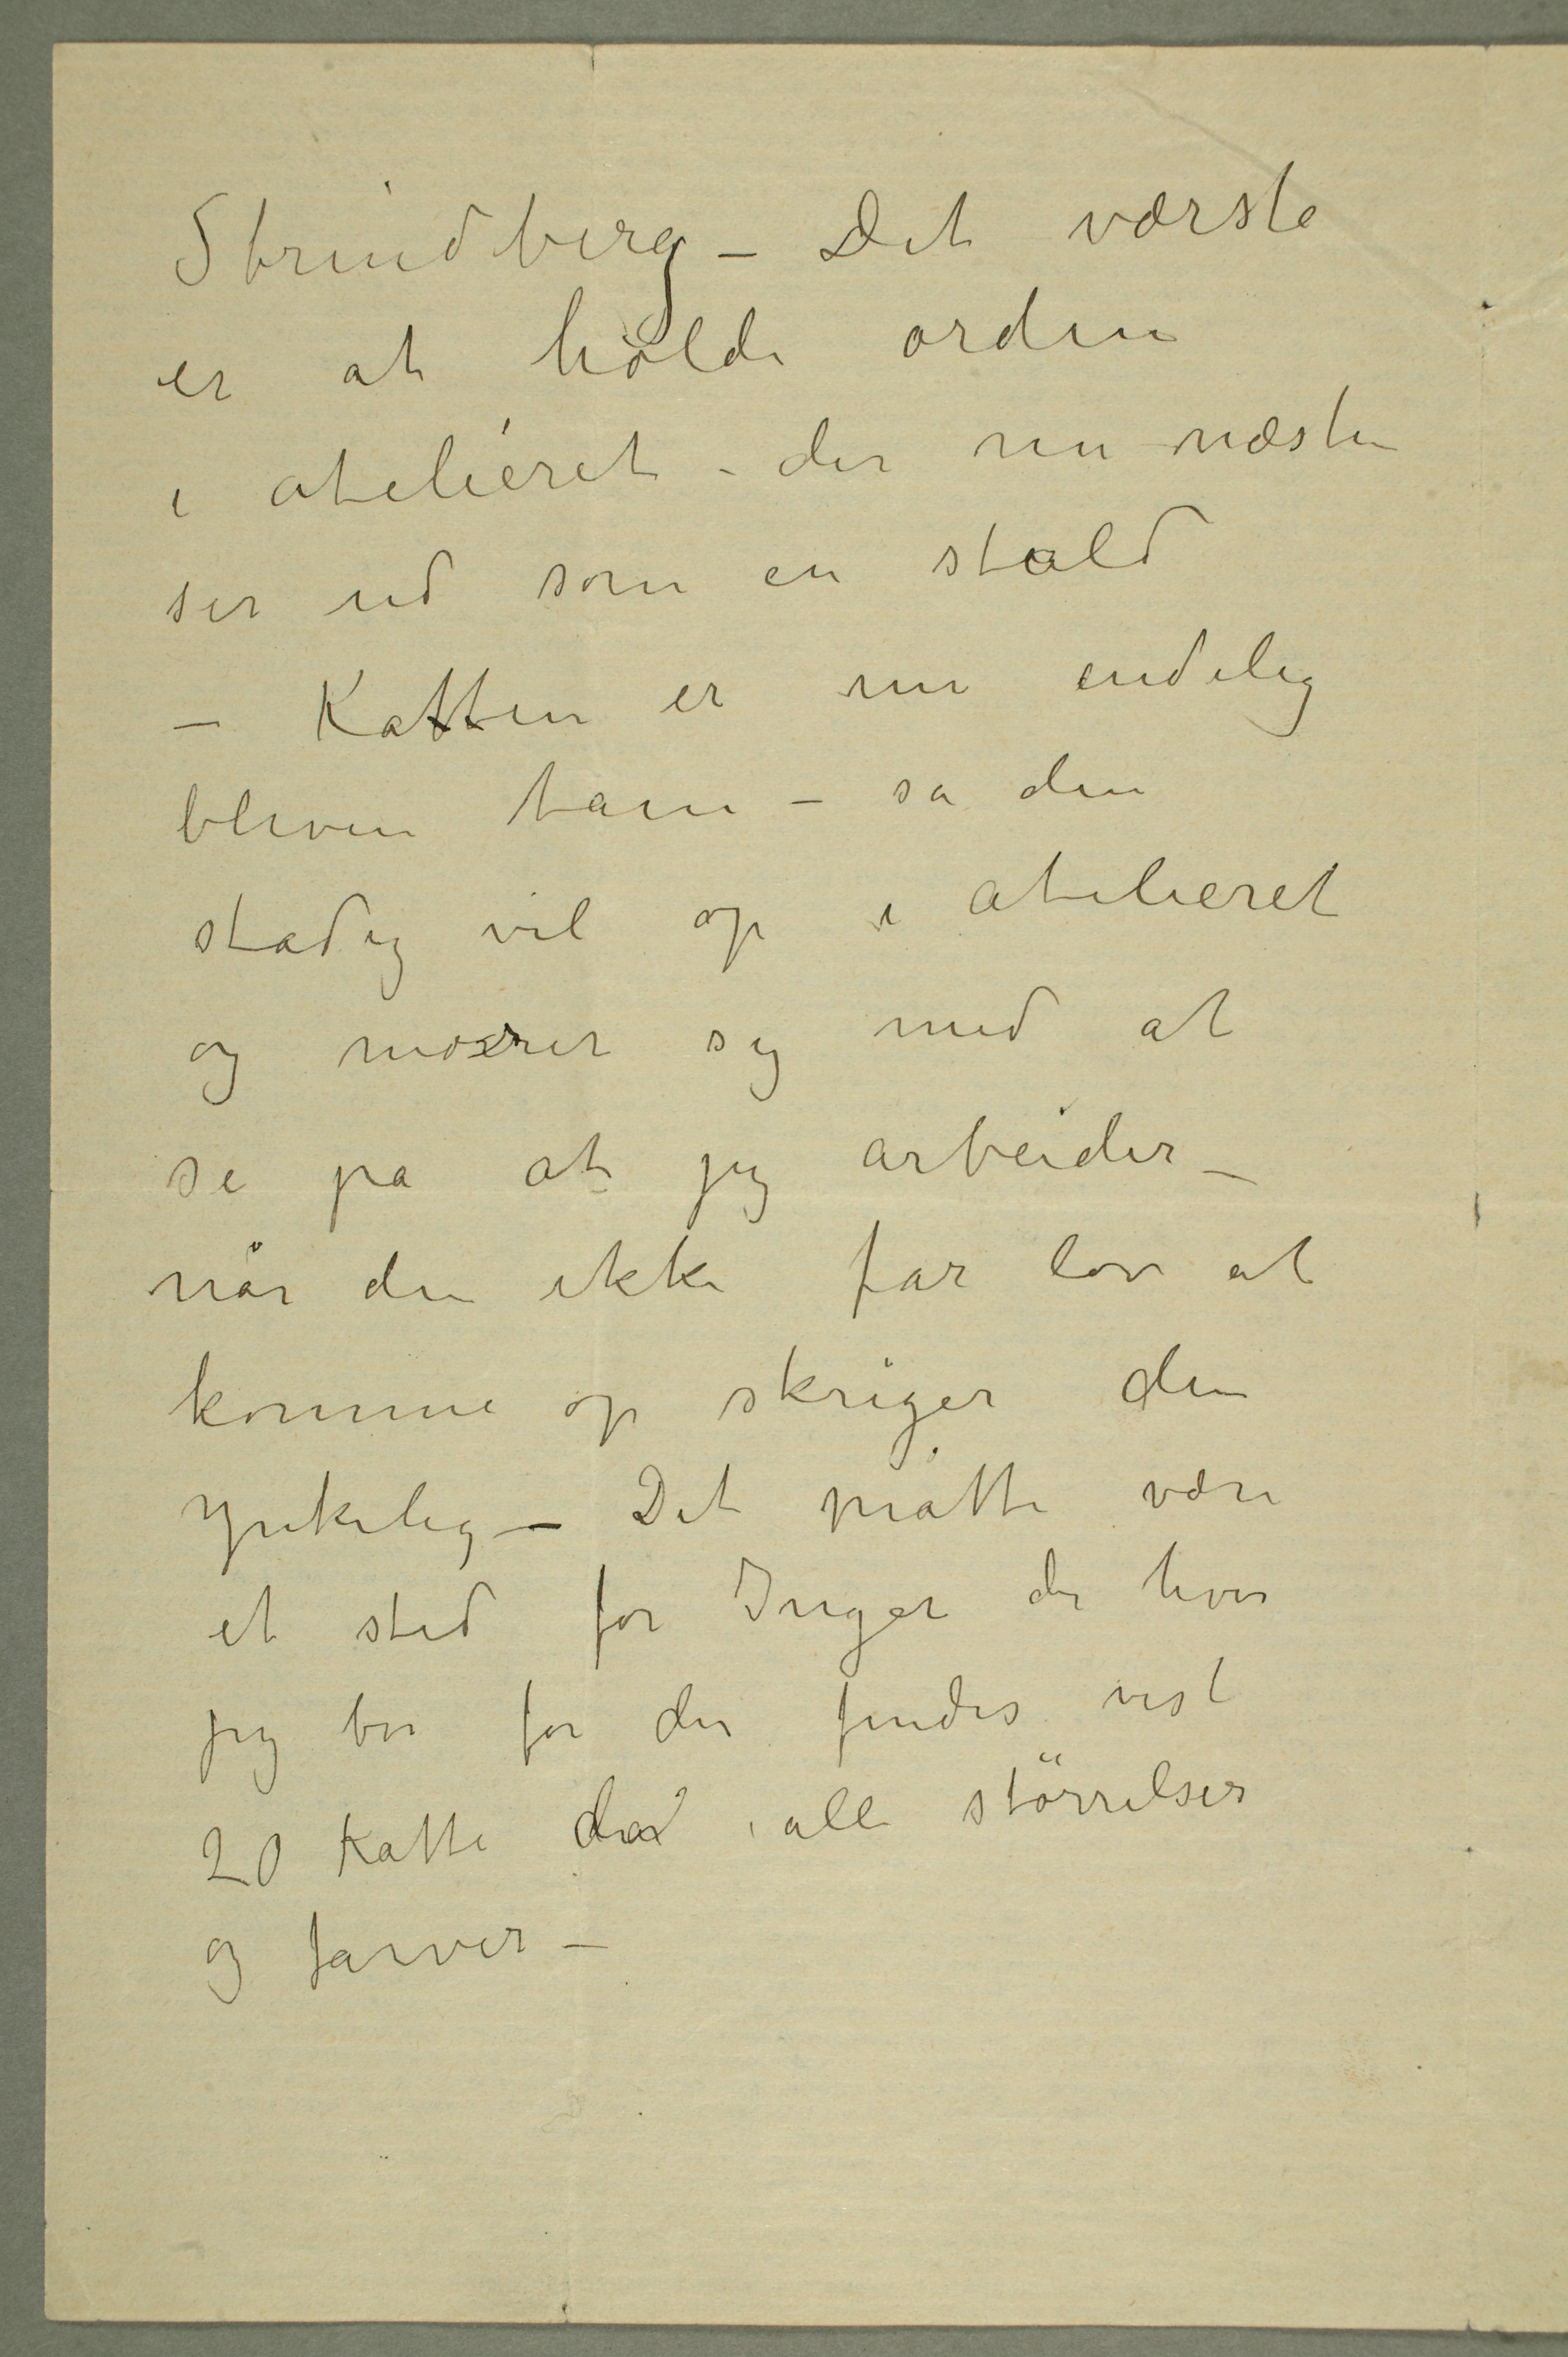 Strindberg – Det værste
er at hålde orden
i atelieret – der nu næsten
ser ud som en stald
– Katten er nu endelig
bleven tam – så den
stadig vil op i atelieret
og morer sig med at
se på at jeg arbeider –
når den ikke får lov at
komme op skriger den
ynkelig – Det måtte være
et sted for Inger der hvor
jeg bor for der findes vist
20 Katte der i alle störrelser
og farver –